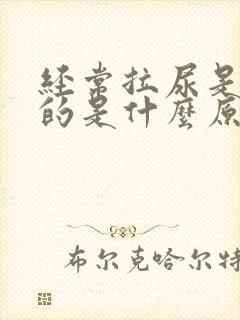 经常拉尿是
的是什麼原
布尔克哈尔特